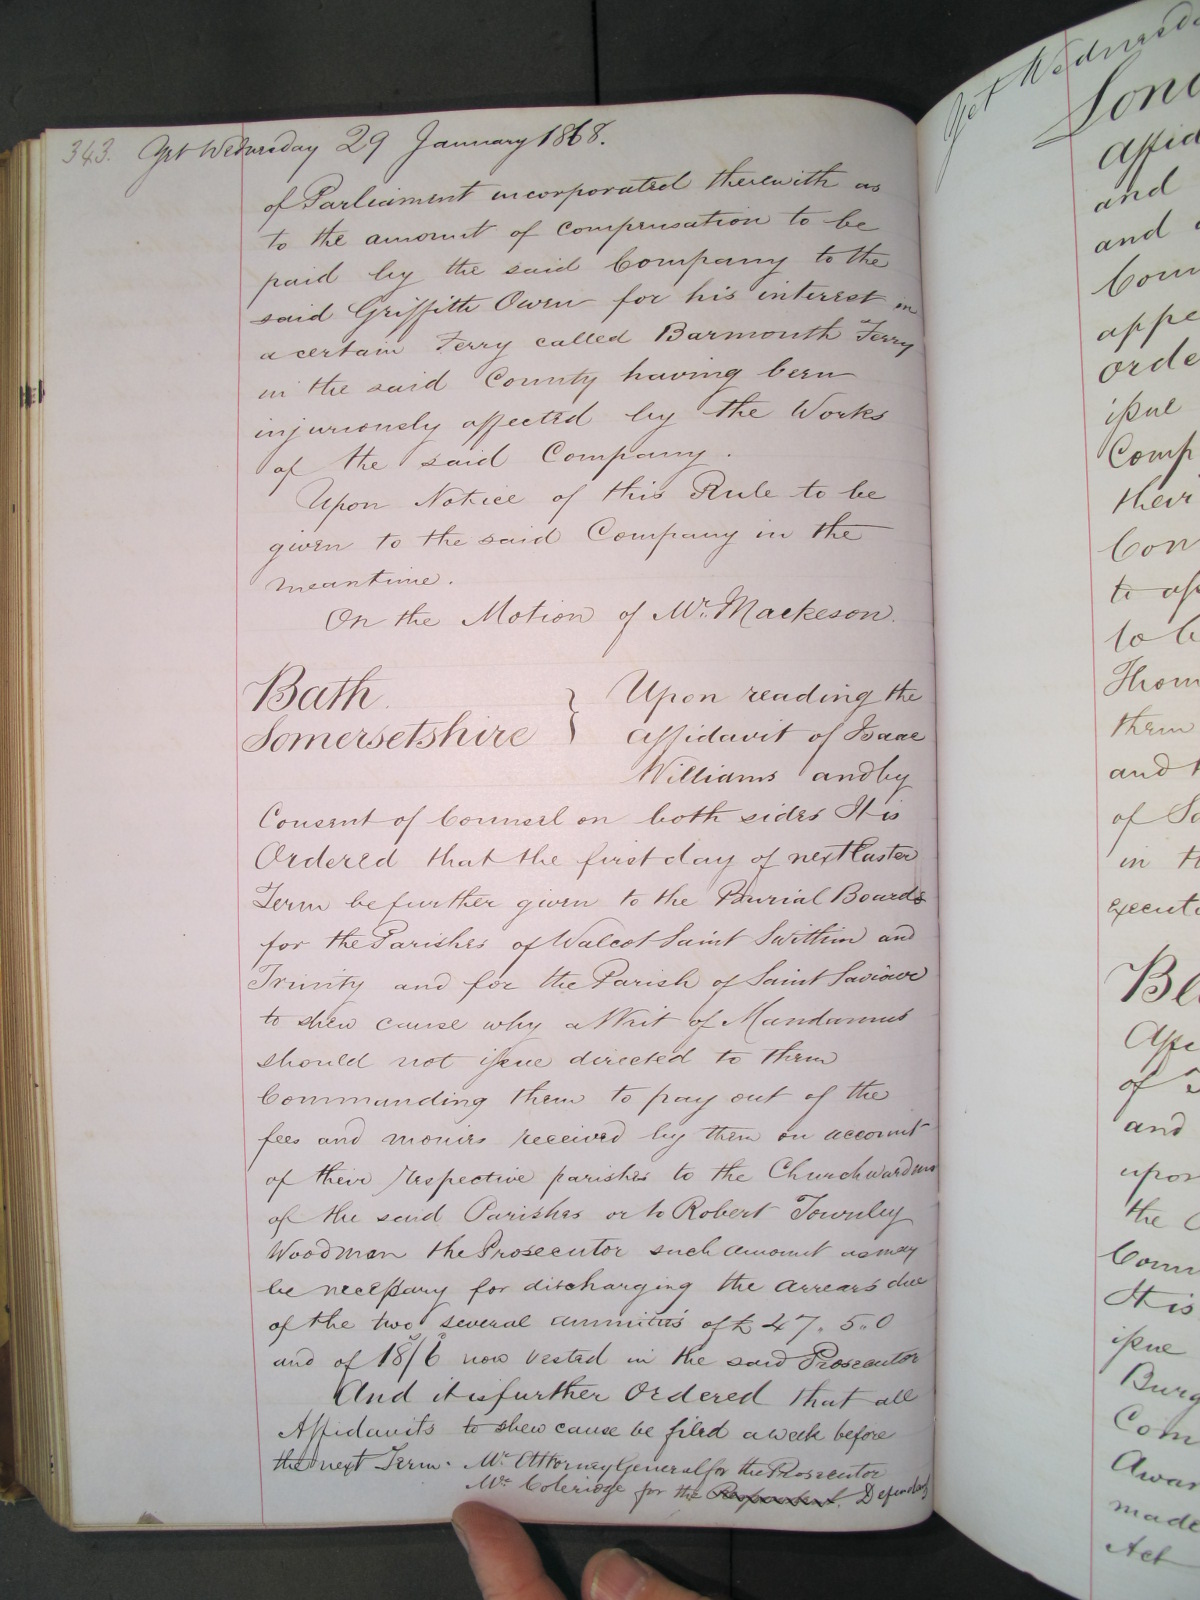 343. Yet Wednesday 29 January 1868.
of Parliament incorporated therewith as
to the amount of compensation to be
paid by the said Company to the
said Griffith Owen for his interest in
a certain Ferry called Barmouth Ferry
in the said County having been
injuriously affected by the Works
of the said Company.
Upon Notice of this Rule to be
given to the said Company in the
meantime.
On the Motion of Mr. Mackeson.
Bath
Somersetshire } Upon reading the
affidavit of Isaac
Williams and by
Consent of Counsel on both sides It is
Ordered that the first day of next Easter
Term be further given to the Burial Boards
for the Parishes of Walcot Saint Swithin and
Trinity and for the Parish of Saint Saviour
to shew cause why a Writ of Mandamus
should not issue directed to them
Commanding them to pay out of the
fees and monies received by them on account
of their respective parishes to the Churchwardens
of the said Parishes or to Robert Townley
Woodman the Prosecutor such amount as may
be necessary for discharging the arrears due
of the two several annuities of £47.5.0
and of 18s/6d now vested in the said Prosecutor
And it is further Ordered that all
Affidavits to shew cause be filed a week before
the next Term. Mr. Attorney General for the Prosecutor
Mr. Coleridge for the Defendants
Yet Wednesday
Affid
and
and
Com
appe
orde
issue
Comp
their
Con
to
to b
Thom
them
and
of So
in
execut
Bl
of
and
upon
the
Com
It is
issue
Burg
Com
Awar
made
Act